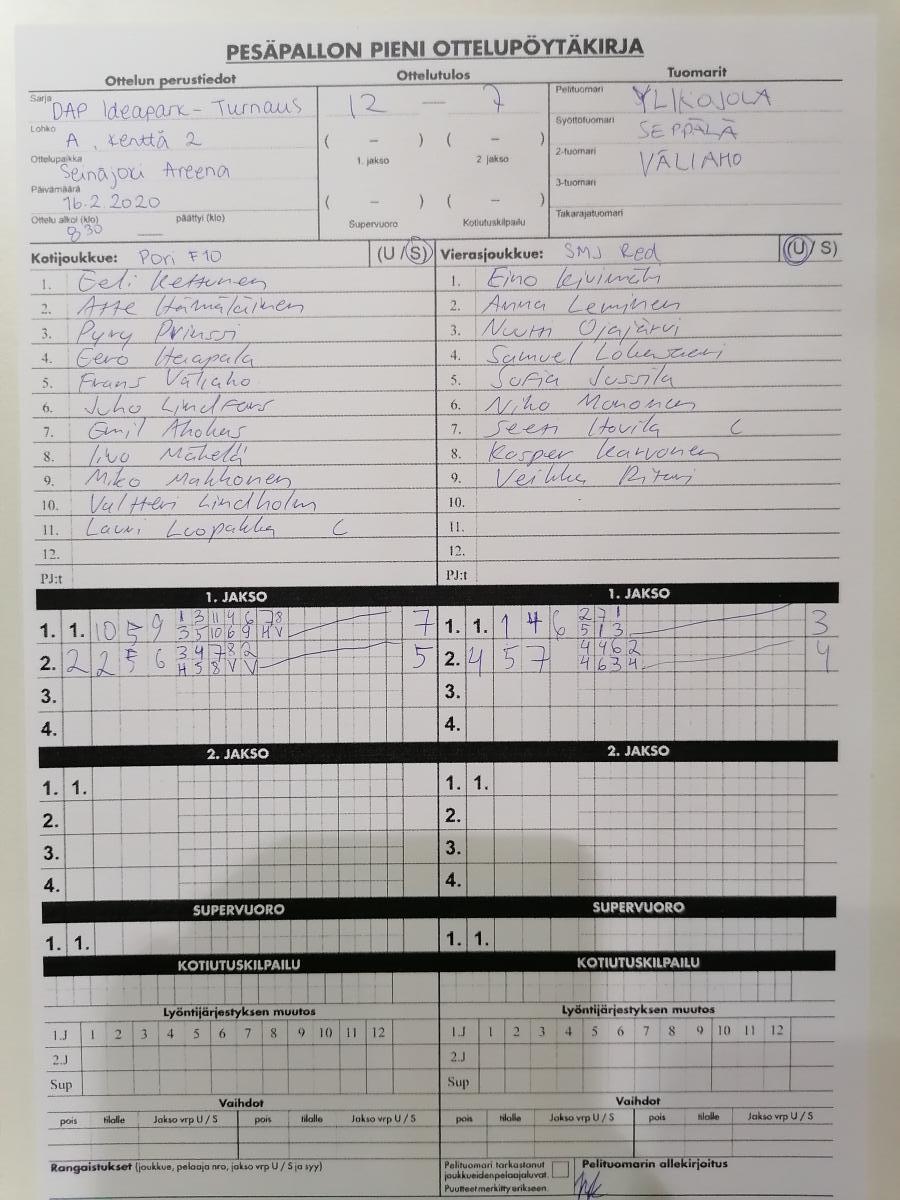 PESÄPALLON PIENI OTTELUPÖYTÄKIRJA
Ottelun perustiedot Ottelutulos Tuomarit
Sarja DAP Ideapark - Turnaus
12 — 7
Pelituomari YLIKOJOLA
Lohko A, kenttä 2
( – ) ( – )
1. jakso 2 jakso
Syöttötuomari SEPPÄLÄ
Ottelupaikka Seinäjoki Areena
2-tuomari VÄLIAHO
Päivämäärä 16.2.2020
( – ) ( – )
Supervuoro Kotiutuskilpailu
3-tuomari
Ottelu alkoi (klo) 8 30 päättyi (klo)
Takarajatuomari
Kotijoukkue: Pori F10 (U / S) Vierasjoukkue: SMJ Red (U / S)
1. Eeli Kettunen 1. Eino Kivimäki
2. Atte Hämäläinen 2. Anna Leminen
3. Pyry Prinssi 3. Nuutti Ojajärvi
4. Eero Haapala 4. Samuel
5. Frans Väliaho 5. Sofia Jussila
6. Juho Lindfors 6. Niko Mononen
7. Emil Ahokas 7. Hovila C
8. Iivo Mäkelä 8. Kasper Karvonen
9. Miko Makkonen 9. Veikka
10. Valtteri Lindholm 10.
11. Lauri Luopakka C 11.
12. 12.
PJ:t PJ:t
1. JAKSO 1. JAKSO
1. 1. 10 5 9 1 3 11 4 6 7 8 7 1. 1. 1 4 6 2 7 1 3
3 5 10 6 9 H V 5 1 3
2. 2 2 5 6 3 4 7 8 2 5 2. 4 5 7 4 4 6 2 4
H 5 8 V V 4 6 3 4
3. 3.
4. 4.
2. JAKSO 2. JAKSO
1. 1. 1. 1.
2. 2.
3. 3.
4. 4.
SUPERVUORO SUPERVUORO
1. 1. 1. 1.
KOTIUTUSKILPAILU KOTIUTUSKILPAILU
Lyöntijärjestyksen muutos Lyöntijärjestyksen muutos
1.J 1 2 3 4 5 6 7 8 9 10 11 12 1.J 1 2 3 4 5 6 7 8 9 10 11 12
2.J 2.J
Sup Sup
Vaihdot Vaihdot
pois tilalle Jakso vrp U / S pois tilalle Jakso vrp U / S pois tilalle Jakso vrp U / S pois tilalle Jakso vrp U / S
Rangaistukset (joukkue, pelaaja nro, jakso vrp U / S ja syy)
Pelituomari tarkastanut
joukkueidenpelaajaluvat.
Puutteet merkitty erikseen.
Pelituomarin allekirjoitus